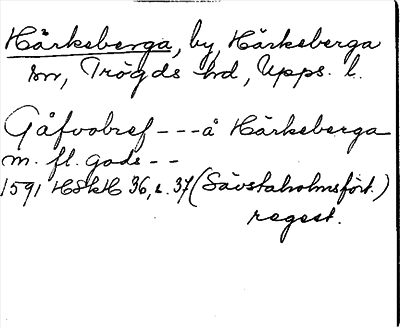 Härkeberga, by, Härkeberga
sn, Trögds hd, Upps. l.
Gåfvobref --- å Härkeberga
m. fl. gods --
1591 HSkH 36, s. 37 (Säfstaholmsfört.)
regest.